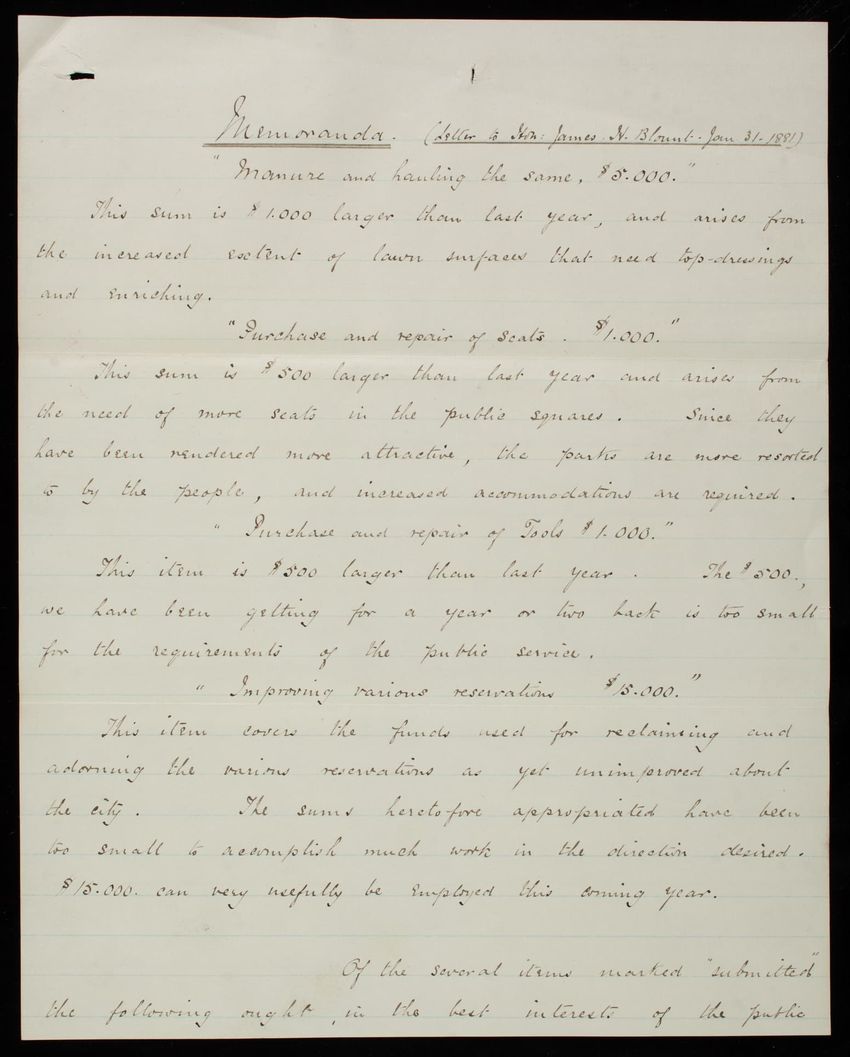 Memoranda. (Letter to Hon: James. H. Blount. Jan 31-1881)
"Manure and hauling the same, $5.000."
This sum is $1.000 larger than last year, and arises from
the increased extent of lawn surfaces that need top-dressings
and enriching.
"Purchase and repair of seats. $1.000."
This sum is $500 larger than last year and arises from
the need of more seats in the public squares. Since they
have been rendered more attractive, the parks are more resorted
to by the people, and increased accommodations are required.
"Purchase and repair of Tools $1.000."
This item is $500 larger than last year. The $500.,
we have been getting for a year or two back is too small
for the requirements of the public service.
"Improving various reservations $15.000."
This item covers the funds used for reclaiming and
adorning the various reservations as yet unimproved about
the city. The sums heretofore appropriated have been
too small to accomplish much work in the direction desired.
$15.000. can very usefully be employed this coming year.
Of the several items marked "submitted"
the following ought, in the best interests of the public